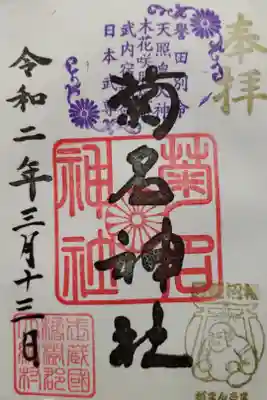 奉拝
誉田別命
天照皇大神
木花咲耶姫命
武内宿禰命
日本武尊
菊名神社
菊名神社
令和二年三月十三日
武蔵國
橘樹郡